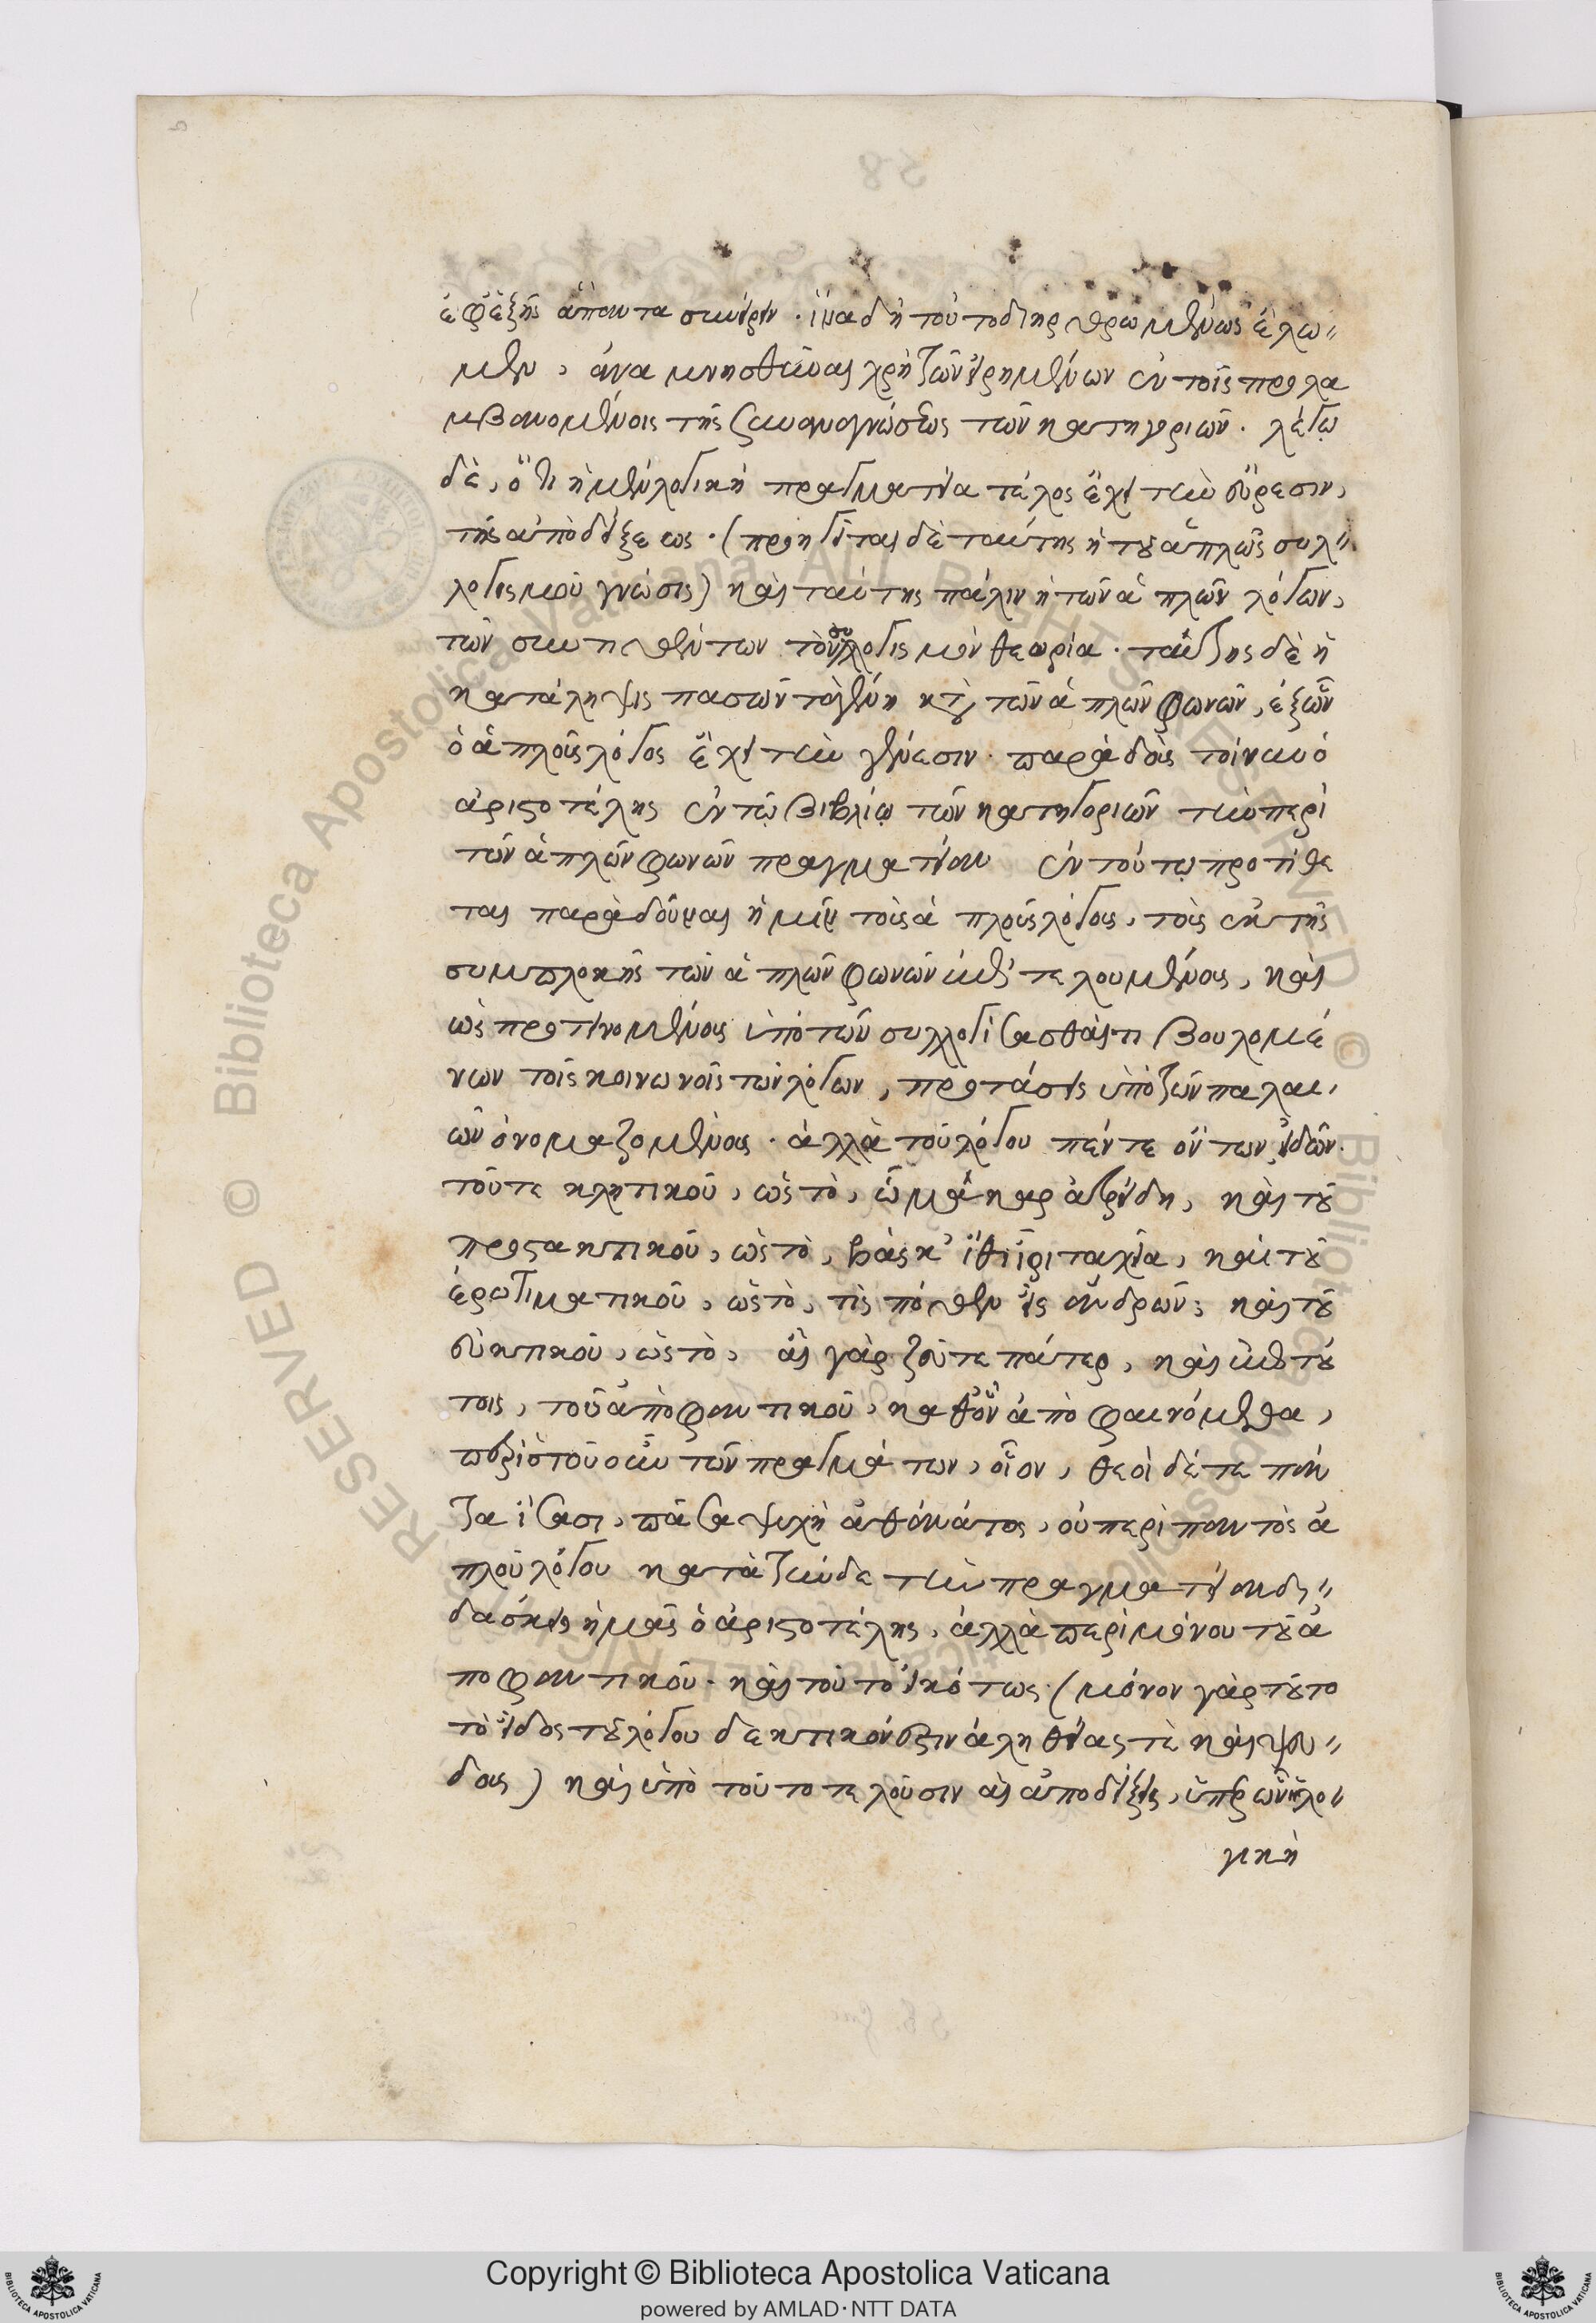 ἐφεξῆς ἅπαντα συνείρειν. ἵνα δὴ τοῦτο διηρθρωμένως ἔχω〃
μεν, ἀναμνησθῆναι χρὴ τῶν εἰρημένων ἐν τοῖς προλα
μβανομένοις τῆς συναναγνώσεως τῶν κατηγοριῶν. λέγω
δὲ, ὅτι ἡ μὲν λογικὴ πραγματεία τέλος ἔχει τὴν εὕρεσιν,
τῆς ἀποδείξεως. (προηγεῖται δὲ ταύτης ἡ τοῦ ἁπλῶς συλ〃
λογισμοῦ γνῶσις) καὶ ταύτης πάλιν ἡ τῶν ἁπλῶν λόγων,
τῶν συντιθέντων τὸν συλλογισμὸν θεωρία. ταύτης δὲ ἡ
κατάληψις πασῶν τῶν ἁπλῶν φωνῶν, ἐξ ὧν
ὁ ἁπλοῦς λόγος ἔχει τὴν γένεσιν. παραδοὺς τοίνυν ὁ
ἀριστοτέλης ἐν τῷ βιβλίῳ τῶν κατηγοριῶν τὴν περὶ
τῶν ἁπλῶν φωνῶν πραγματείαν ἐν τούτῳ προτίθε
ται παραδοῦναι ἡμῖν τοὺς ἁπλοῦς λόγους, τοὺς ἐκ τῆς
συμπλοκῆς τῶν ἁπλῶν φωνῶν μὲν τελουμένους, καὶ
ὡς προτεινομένους ὑπὸ τῶν συλλογίσασθαί τι βουλομέ
νων τοῖς κοινωνοῖς τῶν λόγων, προτάσεις ὑπὸ τῶν παλαι,
ῶν ὀνομαζομένους. ἀλλὰ τοῦ λόγου πέντε ὄντων εἰδῶν.
τοῦ τε κλητικοῦ, ὡς τὸ, ὦ μάκαρ ἀτρείδη, καὶ τοῦ
προστακτικοῦ, ὡς τὸ, βάσκ' ἴθι ἶρι ταχεῖα, καὶ τοῦ
ἐρωτιματικοῦ, ὡς τὸ, τίς πόθεν εἶς ἀνδρῶν; καὶ τοῦ
εὐκτικοῦ, ὡς τὸ, αἲ γὰρ ζεῦ τε πάτερ, καὶ ἐπὶ τού
τοις, τοῦ ἀποφαντικοῦ, καθ' ὃν ἀποφαινόμεθα,
περὶ ὁτουοῦν τῶν πραγμάτων, οἷον, θεοὶ δέ τε πάν
τα ἴσασι, πᾶσα ψυχὴ ἀθάνατος, οὐ περὶ παντὸς ἁ
πλοῦ λόγου κατὰ τήνδε τὴν πραγματείαν δι〃
δάσκει ἡμᾶς ὁ ἀριστοτέλης, ἀλλὰ περὶ μόνου τοῦ ἀ
ποφαντικοῦ. καὶ τοῦτο εἰκότως. (μόνον γὰρ τοῦτο
τὸ εἶδος τοῦ λόγου δεκτικόν ἐστιν ἀληθείας τὲ καὶ ψευ〃
δους) καὶ ὑπὸ τοῦτο τελοῦσιν αἱ ἀποδείξεις, ὑπὲρ ὧν ἡ λο〃
γικὴ